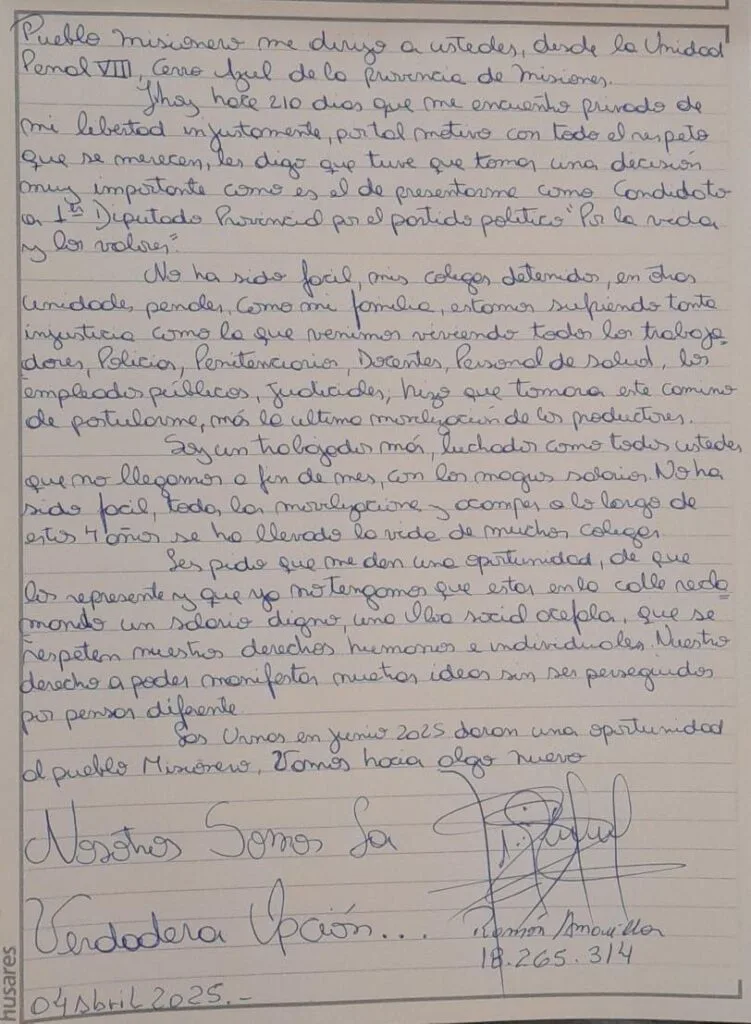 Pueblo misionero me dirijo a ustedes, desde la Unidad
Penal VIII, Cerro Azul de la provincia de Misiones.
Y hoy hace 210 dias que me encuentro privado de
mi libertad injustamente, por tal motivo con todo el respeto
que se merecen, les digo que tuve que tomar una decisión
muy importante como es el de presentarme como Candidato
a 1er Diputado Provincial por el partido politico "Por la vida
y los valores"
No ha sido facil, mis colegas detenidos, en otras
unidades penales, como mi familia, estamos sufriendo tanta
injusticia como la que venimos viviendo todos los trabaja-
dores, Policias, Penitenciarios, Docentes, Personal de salud, los
empleados públicos, Judiciales, hizo que tomara este camino
de postularme, más la ultima movilización de los productores.
Soy un trabajador más, luchador como todos ustedes
que no llegamos a fin de mes, con los magros salarios. No ha
sido facil, todas las movilizaciones y acampes a lo largo de
estos 4 años se ha llevado la vida de muchos colegas
Les pido que me den una oportunidad, de que
los represente y que ya no tengamos que estar en la calle recla
mando un salario digno, una Obra social acéfala, que se
respeten nuestros derechos humanos e individuales. Nuestro
derecho a poder manifestar nuestras ideas sin ser perseguidos
por pensar diferente
Las Urnas en junio 2025 daran una oportunidad
al pueblo Misionero, Vamos hacia algo nuevo
Nosotros Somos La
Verdadera Opción...
Ramón Amarilla
18.265.314
04 Abril 2025.-
husares